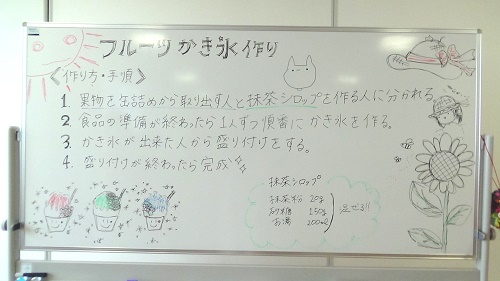 フルーツかき氷作り
《作り方・手順》
1. 果物を缶詰めから取り出す人と抹茶シロップを作る人に分かれる。
2. 食品の準備が終わったら1人ずつ順番にかき氷を作る。
3. かき氷が出来た人から盛り付けをする。
4. 盛り付けが終わったら完成
抹茶シロップ
抹茶粉 20g
砂糖 150g
お湯 200ml
混ぜる!!